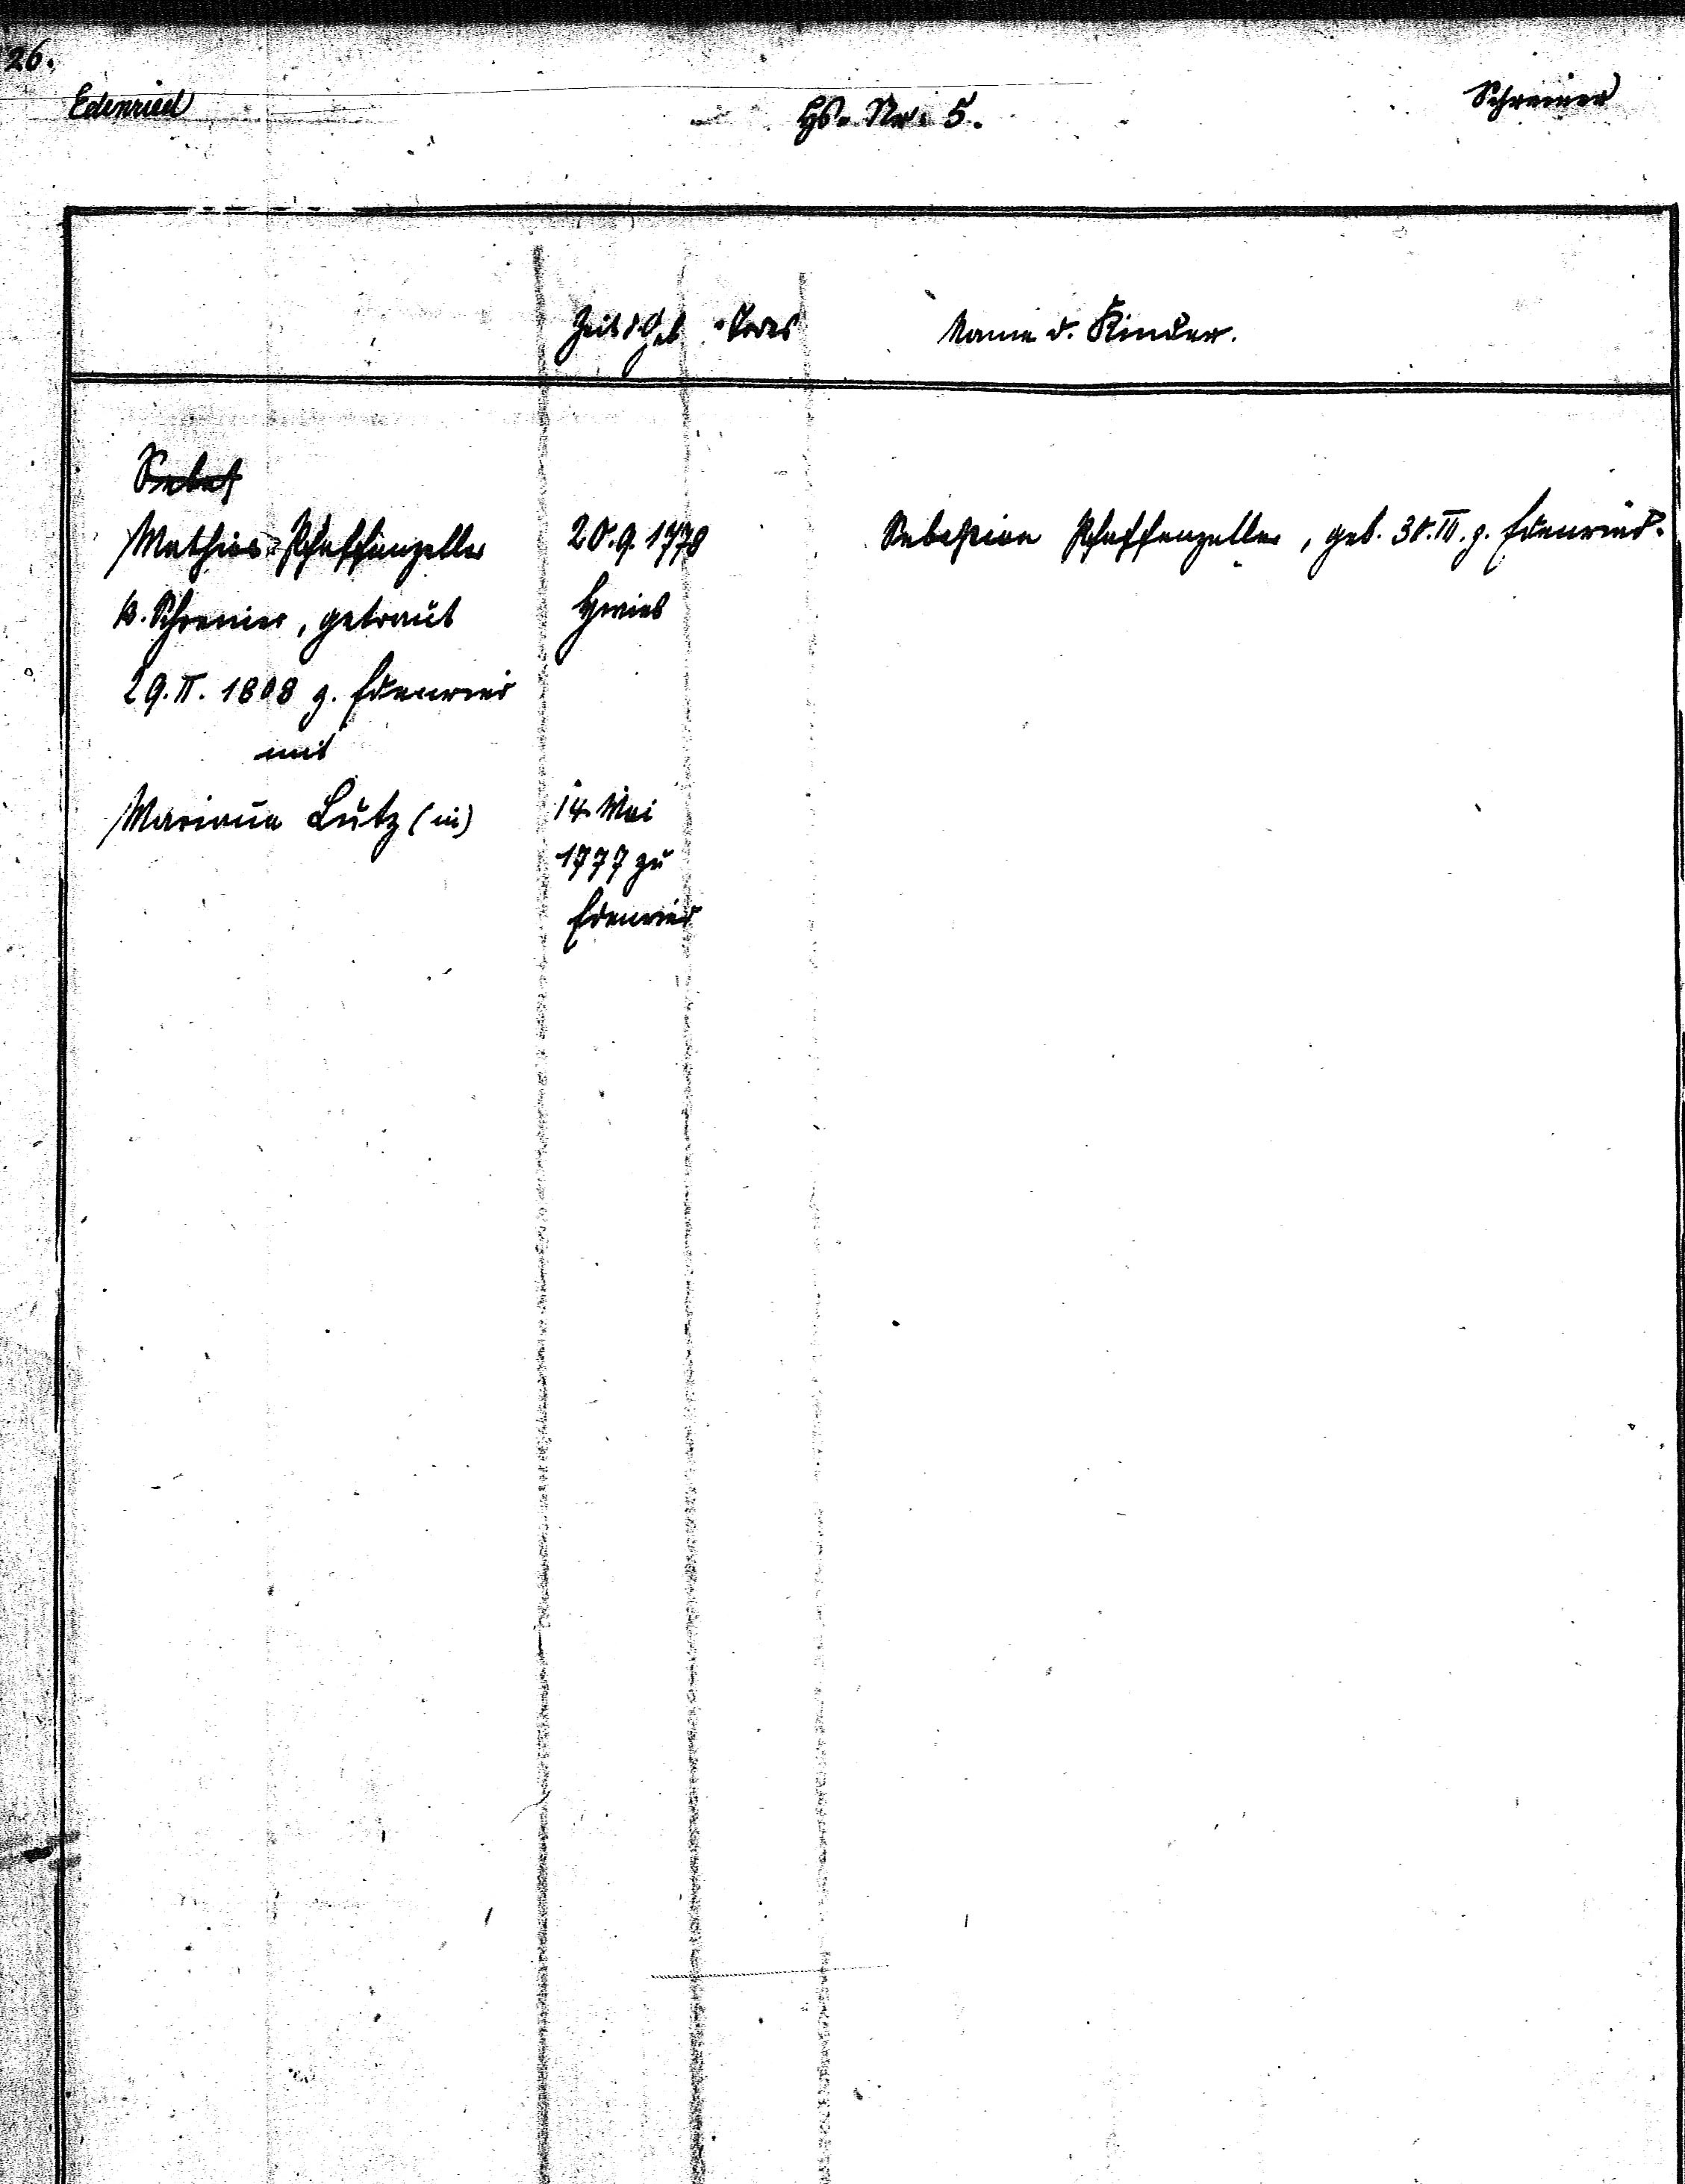 26.
Edenried
Hs. Nr. 5.
Schreiner
Zeit d. Geb.
Todes
Name d. Kinder.
Sebast
Mathias Pfaffenzeller
b. Schreiner, getraut
29. II. 1808 z. Edenried
mit
Marianna Lutz (in)
20.9.1778
14. Mai
1777 zu
Edenried
Sebastian Pfaffenzeller, geb. 30. III. z. Edenried.